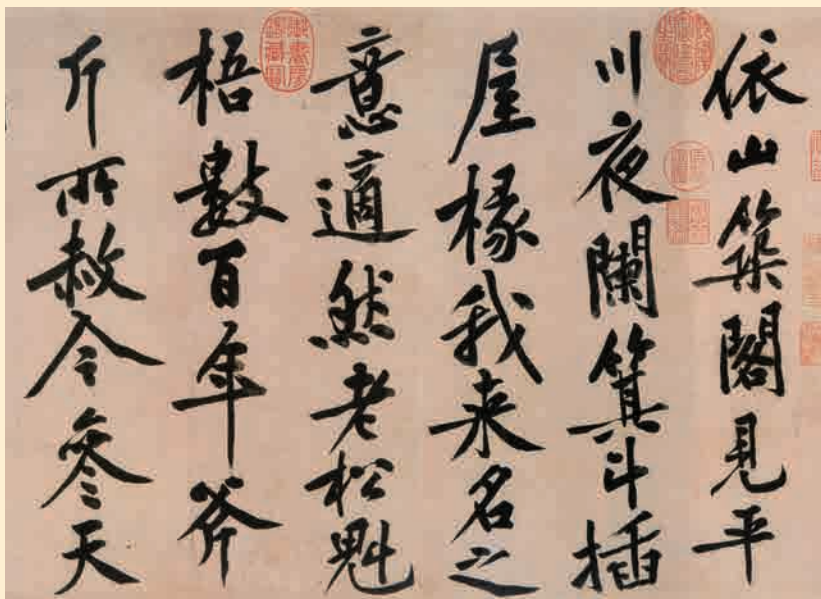 依山築閣見平
川夜闌箕斗插
屋椽我来名之
意適然老松魁
梧數百年斧
斤所赦令參天
御書房鑑藏寶